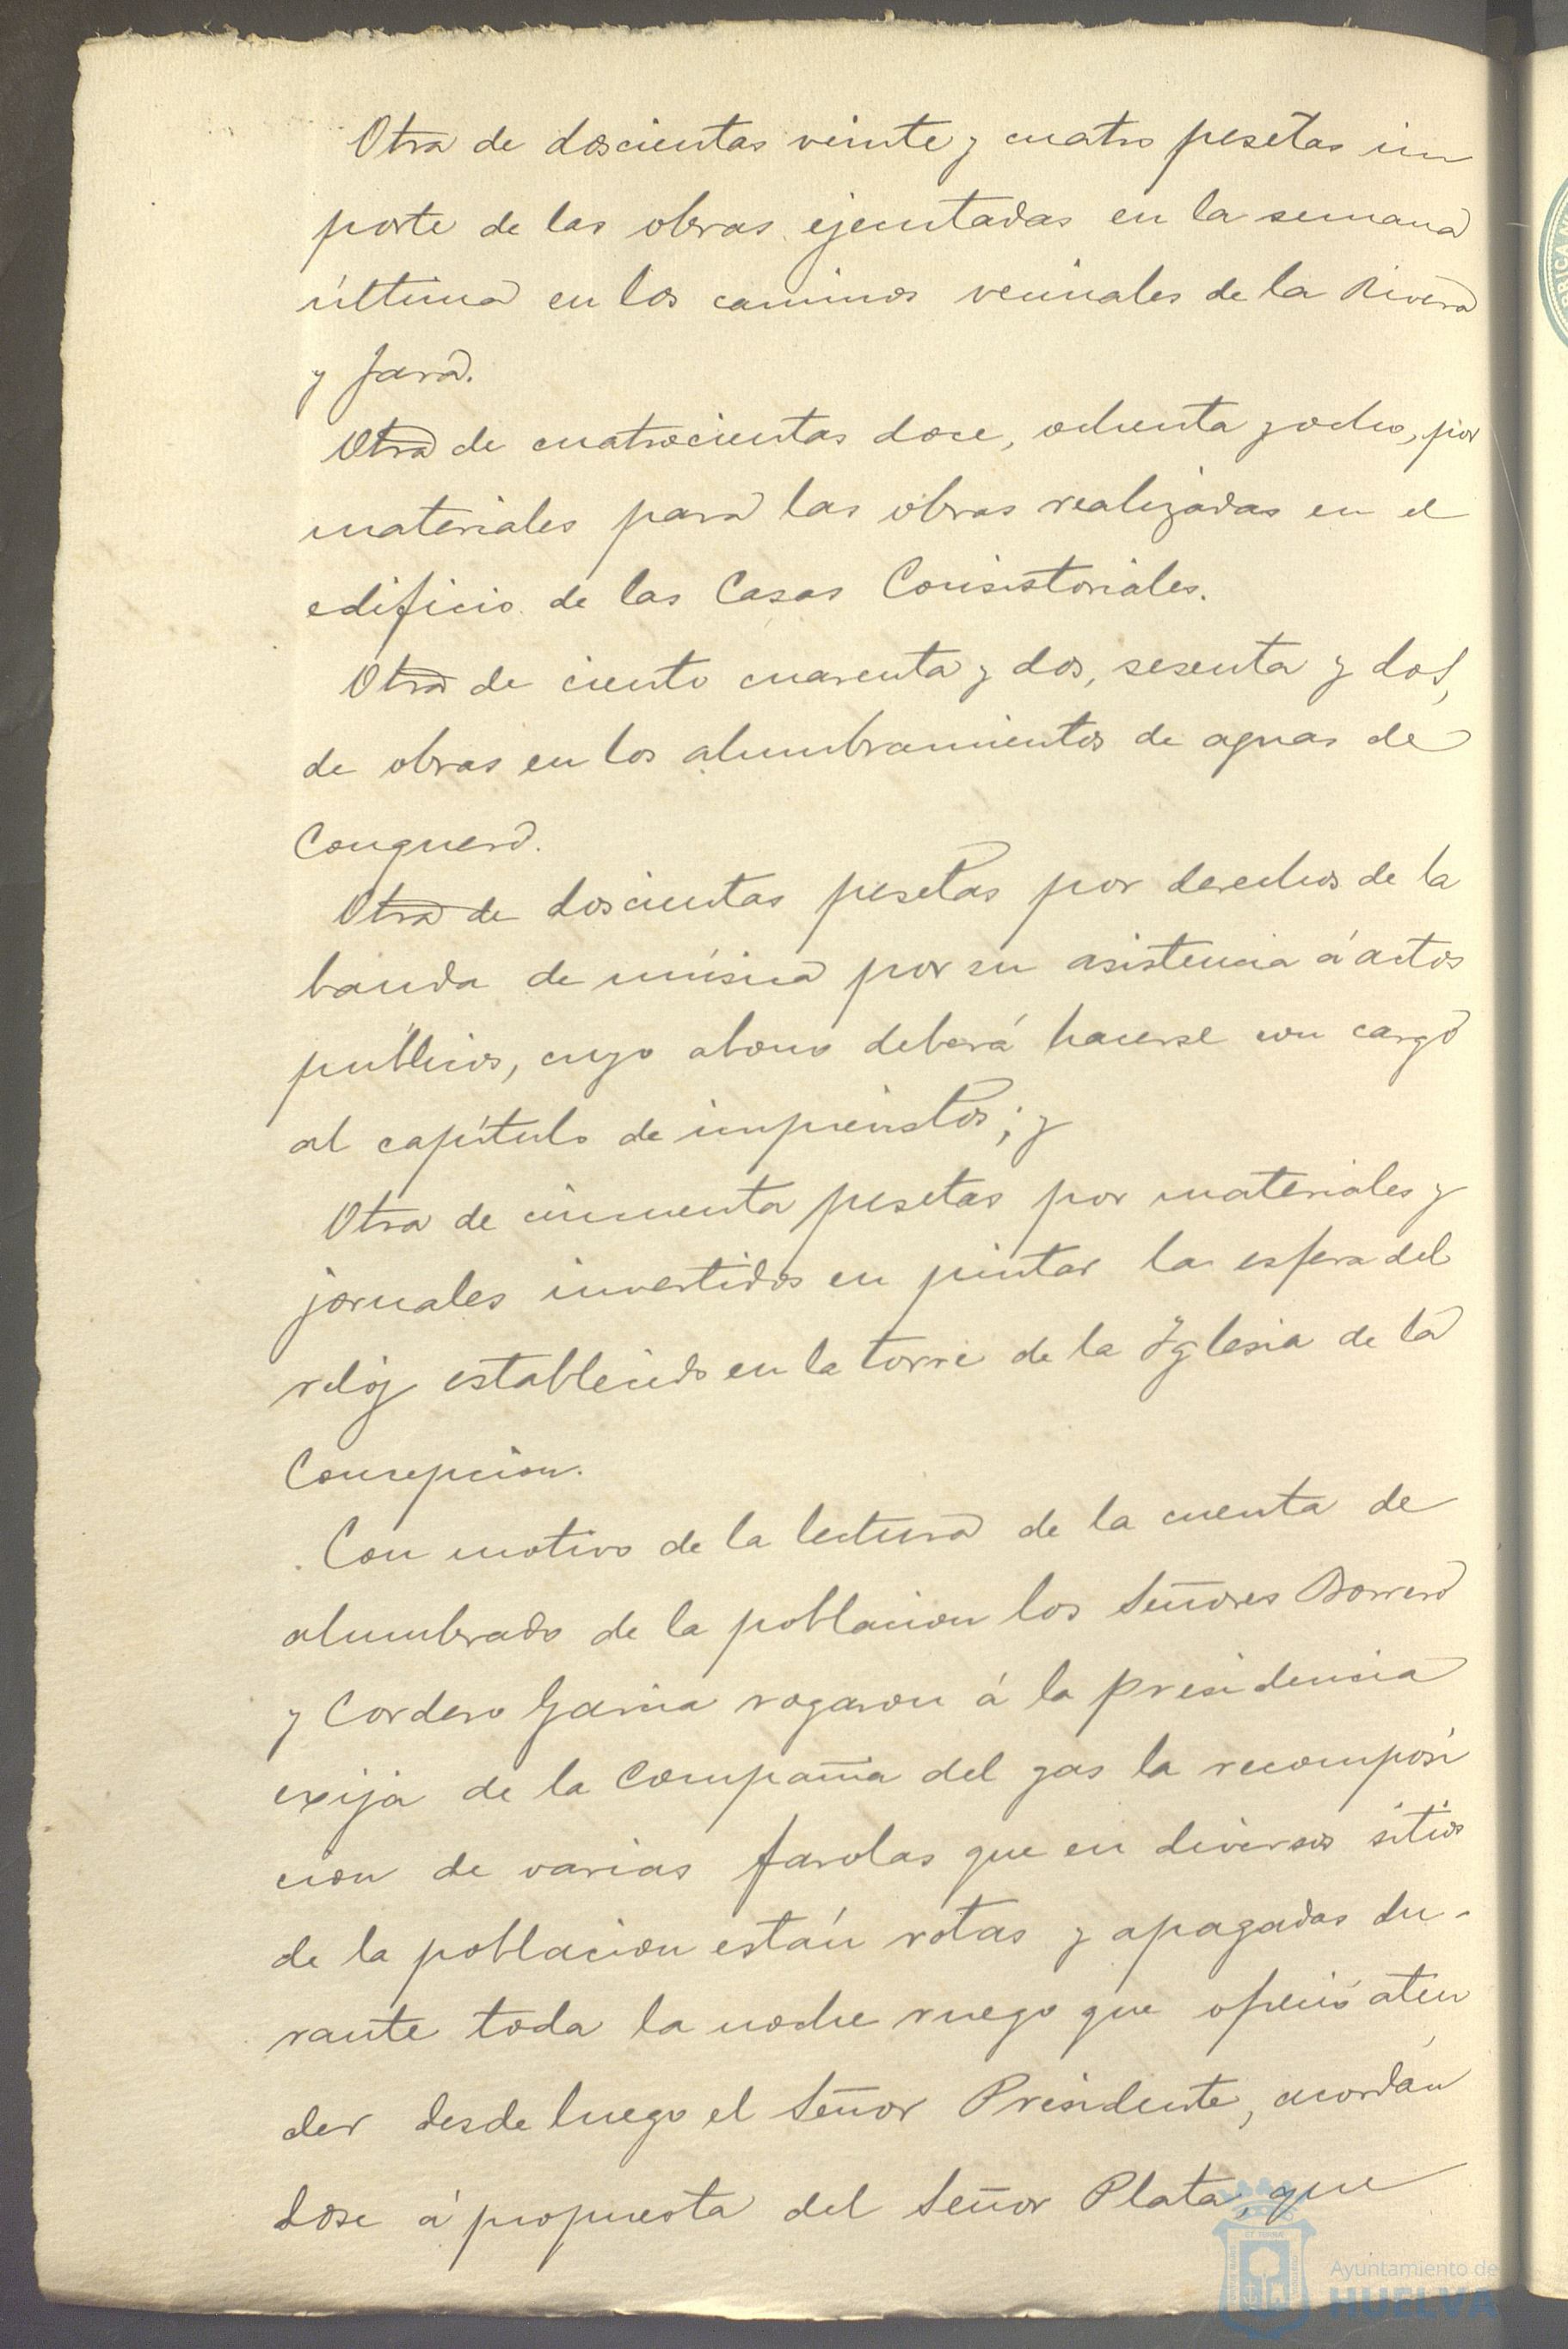 Otra de doscientas veinte y cuatro pesetas im
porte de las obras ejecutadas en la semana
última en los caminos vecinales de la Rivera
y Jara.
Otra de cuatrocientas doce, ochenta y ocho, por
materiales para las obras realizadas en el
edificio de las Casas Consistoriales.
Otra de ciento cuarenta y dos, sesenta y dos,
de obras en los alumbramientos de aguas de
Conquero.
Otra de doscientas pesetas por derechos de la
banda de música por su asistencia á actos
públicos, cuyo abono deberá hacerse con cargo
al capítulo de imprevistos; y
Otra de cincuenta pesetas por materiales y
jornales invertidos en pintar la esfera del
reloj establecido en la torre de la Iglesia de la
Concepcion.
Con motivo de la lectura de la cuenta de
alumbrado de la poblacion los Señores Borrero
y Cordero Garcia rogaron á la presidencia
exija de la Compañia del gas la recomposi
cion de varias farolas que en diversos sitios
de la poblacion están rotas y apagadas du-
rante toda la noche ruego que ofreció aten
der desde luego el Señor Presidente, acordán
dose á propuesta del Señor Plata, que
Ayuntamiento de
HUELVA